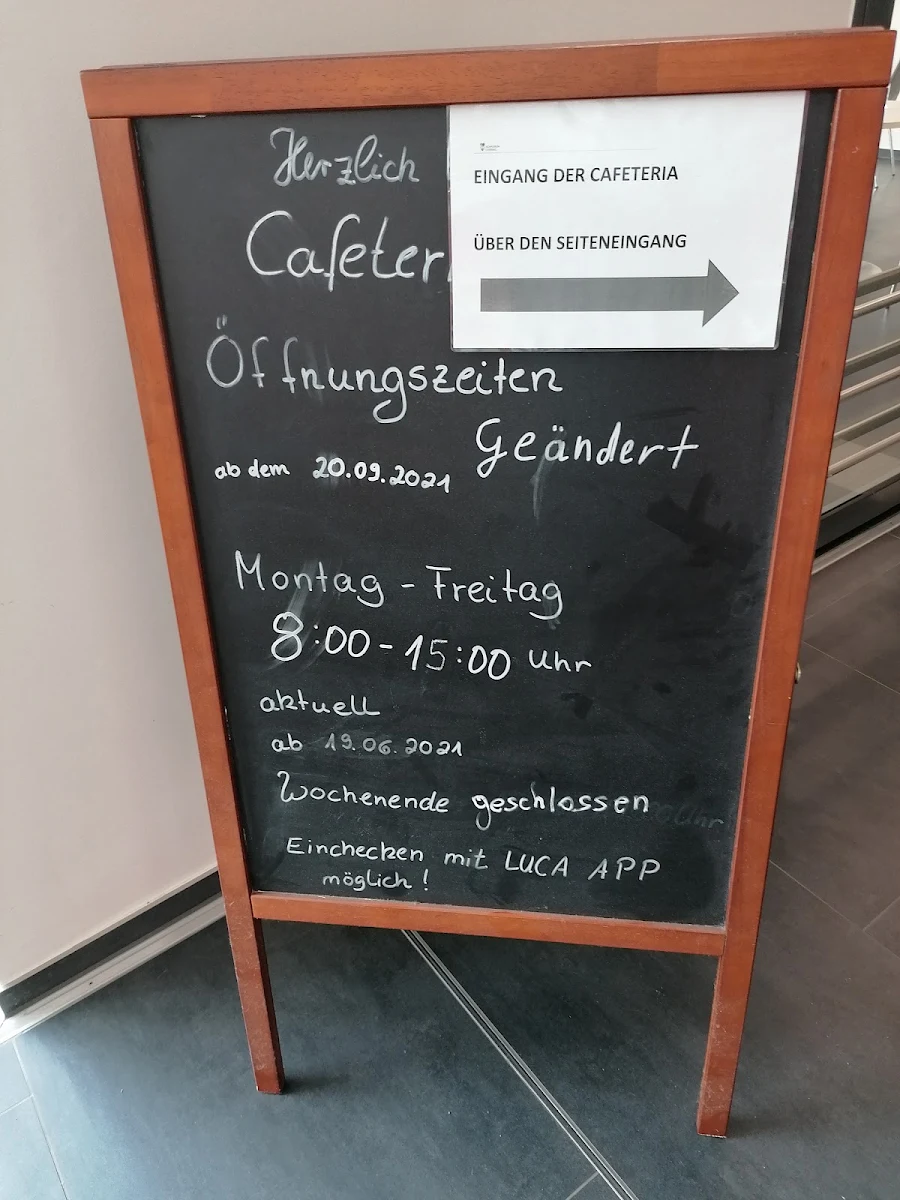 Herzlich
Cafeter
EINGANG DER CAFETERIA
ÜBER DEN SEITENEINGANG
Öffnungszeiten
Geändert
ab dem 20.09.2021
Montag - Freitag
8:00 - 15:00 Uhr
aktuell
ab 19.06.2021
Wochenende geschlossen
Uhr
Einchecken mit LUCA APP
möglich !